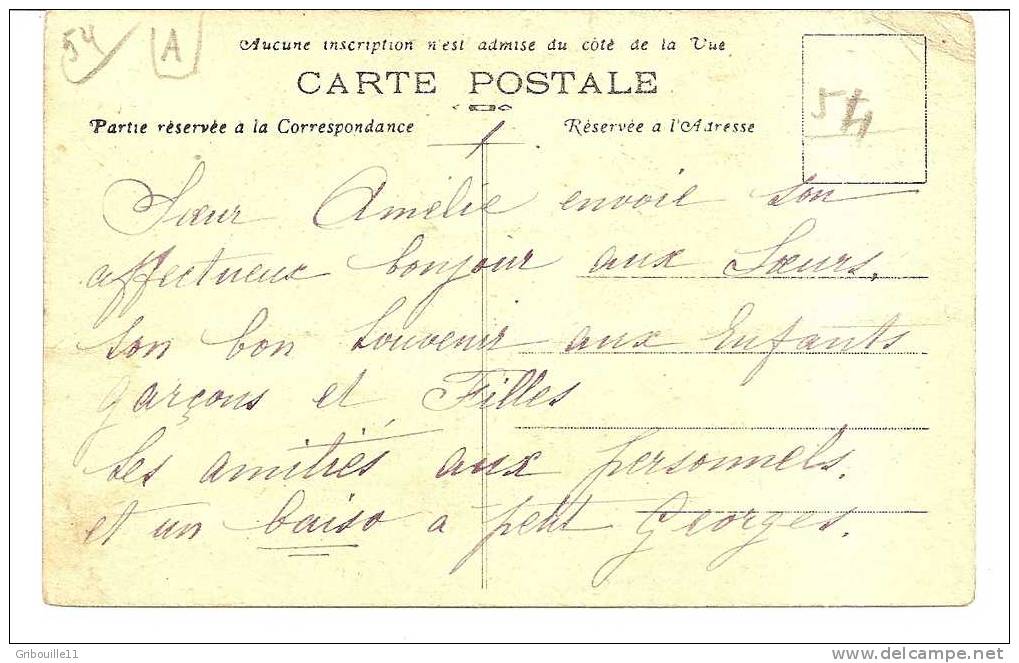 54
A
Aucune inscription n'est admise du côté de la Vue
CARTE POSTALE
Partie réservée à la Correspondance
Réservée a l'Adresse
54
Sœur Amélie envoie son
affectueux bonjour aux Sœurs,
son bon souvenir aux Enfants
garçons et Filles
ses amitiés aux personnels.
et un baiso a petit Georges.
Gribouille11
www.delcampe.net